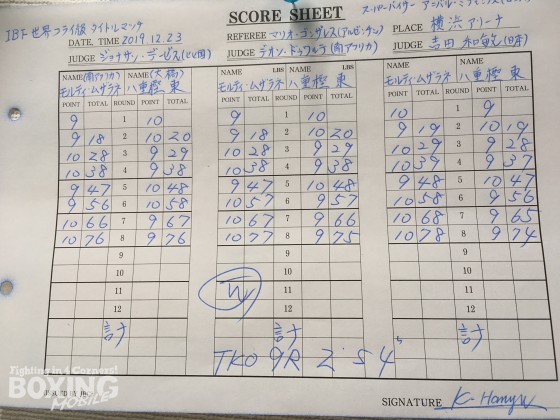 SCORE SHEET
IBF世界フライ級タイトルマッチ
DATE, TIME 2019 12.23
REFEREE マリオ・ゴンザレス(アルゼンチン)
PLACE 横浜アリーナ
JUDGE
JUDGE
JUDGE
NAME (南アフリカ) NAME (大橋) NAME LBS NAME LBS NAME NAME
モルティ・ムザラネ 八重樫 東 モルティ・ムザラネ 八重樫 東 モルティ・ムザラネ 八重樫 東
POINT TOTAL ROUND POINT TOTAL POINT TOTAL ROUND POINT TOTAL POINT TOTAL ROUND POINT TOTAL
9 1 10 9 1 10 10 1 9
9 18 2 10 20 9 18 2 10 20 9 19 2 10 19
10 28 3 9 29 10 28 3 9 29 10 29 3 9 28
10 38 4 9 38 10 38 4 9 38 10 39 4 9 37
9 47 5 10 48 9 47 5 10 48 9 48 5 10 47
9 56 6 10 58 10 57 6 9 57 10 58 6 9 56
10 66 7 9 67 10 67 7 9 66 10 68 7 9 65
10 76 8 9 76 10 77 8 9 75 10 78 8 9 74
9 9 9
10 10 10
11 W 11 11
12 12 12
計 計 計
TKO 9R 2'54"
Fighting in 4 Corners!
BOXING
MOBILE
SIGNATURE